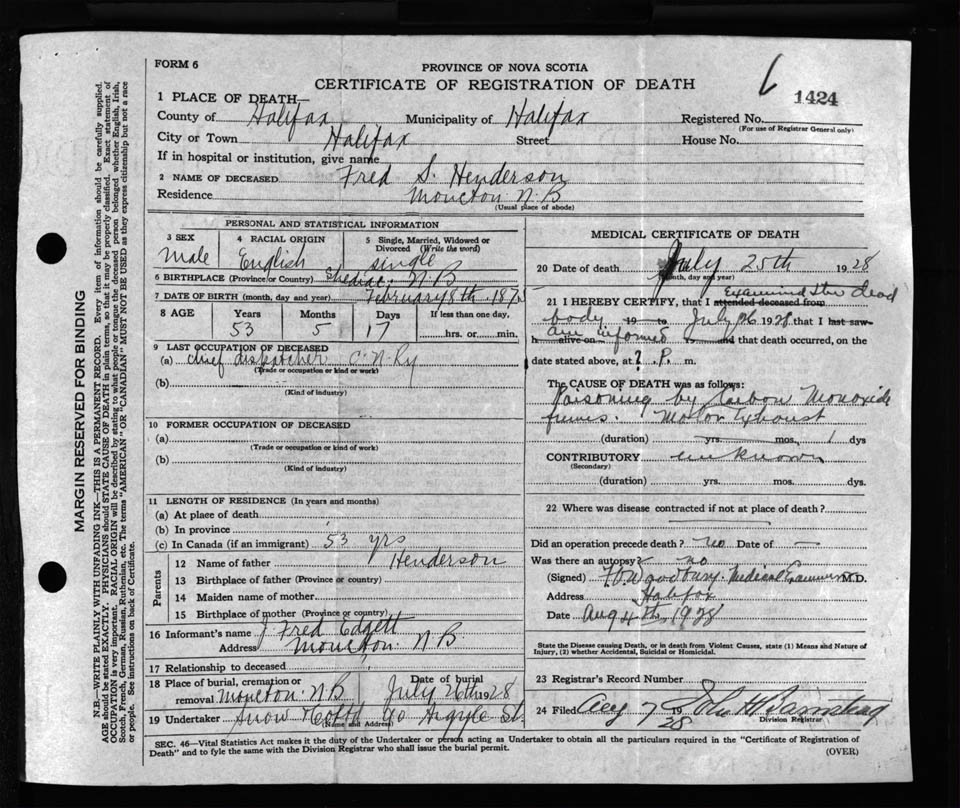 FORM 6
PROVINCE OF NOVA SCOTIA
CERTIFICATE OF REGISTRATION OF DEATH
6
1424
1 PLACE OF DEATH—
County of Halifax Municipality of Halifax Registered No.
(For use of Registrar General only)
City or Town Halifax Street House No.
If in hospital or institution, give name
2 NAME OF DECEASED Fred S. Henderson
Residence Moncton N.B
(Usual place of abode)
PERSONAL AND STATISTICAL INFORMATION
3 SEX 4 RACIAL ORIGIN 5 Single, Married, Widowed or Divorced (Write the word)
Male English single
6 BIRTHPLACE (Province or Country) Shediac. N.B
7 DATE OF BIRTH (month, day and year) February 8th 187
8 AGE Years Months Days If less than one day,
53 5 17 hrs. or min.
9 LAST OCCUPATION OF DECEASED
(a) chief dispatcher C.N.Ry
(Trade or occupation or kind of work)
(b)
(Kind of industry)
10 FORMER OCCUPATION OF DECEASED
(a)
(Trade or occupation or kind of work)
(b)
(Kind of industry)
11 LENGTH OF RESIDENCE (In years and months)
(a) At place of death
(b) In province
(c) In Canada (if an immigrant) 53 yrs
Parents
12 Name of father Henderson
13 Birthplace of father (Province or country)
14 Maiden name of mother
15 Birthplace of mother (Province or country)
16 Informant's name J Fred Edgett
Address Moncton. N.B
17 Relationship to deceased
18 Place of burial, cremation or removal Moncton. N.B Date of burial July 26th 1928
19 Undertaker Snow 90 Argyle St.
(Name and Address)
MEDICAL CERTIFICATE OF DEATH
20 Date of death July 25th 1928
(Month, day and year)
21 I HEREBY CERTIFY, that I attended deceased from Examined the dead
body 19 to July 26 1928 that I last saw
h alive on am informed and that death occurred, on the
date stated above, at ? P. m.
The CAUSE OF DEATH was as follows:
Poisoning by Carbon Monoxide
fumes. Motor Exhaust
(duration) yrs. mos. 1 dys
CONTRIBUTORY unknown
(Secondary)
(duration) yrs. mos. dys.
22 Where was disease contracted if not at place of death?
Did an operation precede death? no Date of —
Was there an autopsy? no
(Signed) Woodbury. Medical Examiner M.D.
Address Halifax
Date Aug 4th 1928
State the Disease causing Death, or in death from Violent Causes, state (1) Means and Nature of
Injury, (2) whether Accidental, Suicidal or Homicidal.
23 Registrar's Record Number
24 Filed Aug 7 1928
Division Registrar
SEC. 46—Vital Statistics Act makes it the duty of the Undertaker or person acting as Undertaker to obtain all the particulars required in the "Certificate of Registration of
Death" and to fyle the same with the Division Registrar who shall issue the burial permit.
(OVER)
MARGIN RESERVED FOR BINDING
N.B.—WRITE PLAINLY WITH UNFADING INK—THIS IS A PERMANENT RECORD. Every item of information should be carefully supplied.
AGE should be stated EXACTLY. PHYSICIANS should STATE CAUSE OF DEATH in plain terms, so that it may be properly classified. Exact statement of
OCCUPATION is very important. RACIAL ORIGIN will be described by stating to what people or tongue the deceased person belonged whether English, Irish,
Scotch, French, German, Russian, Ruthenian, etc. The terms "AMERICAN" OR "CANADIAN" MUST NOT BE USED as they express citizenship but not a race
or people. See instructions on back of Certificate.